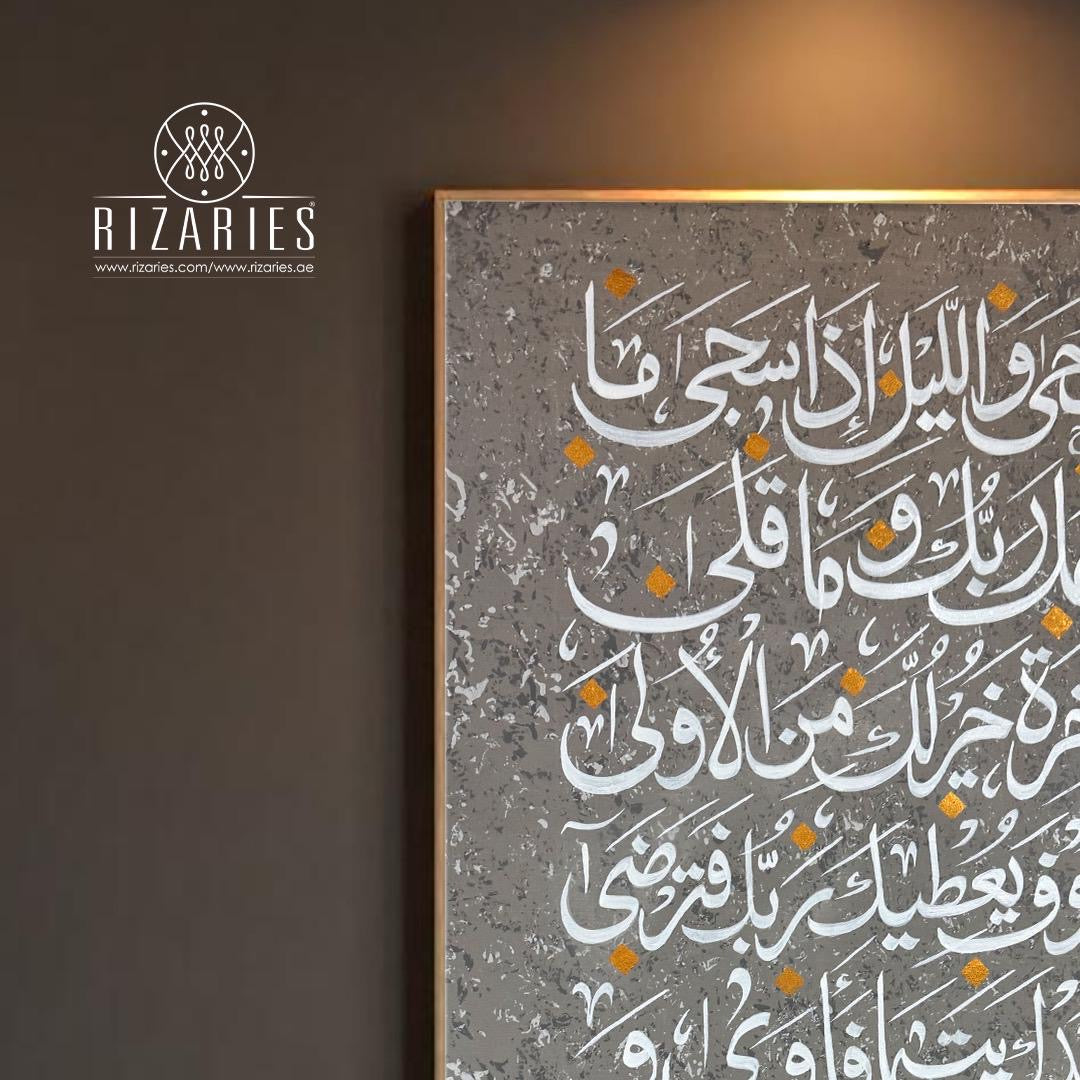 RIZARIES®
www.rizaries.com/www.rizaries.ae
والليل إذا سجى ما
ربك وما قلى
خير لك من الأولى
يعطيك ربك فترضى
يتيما فآوى و